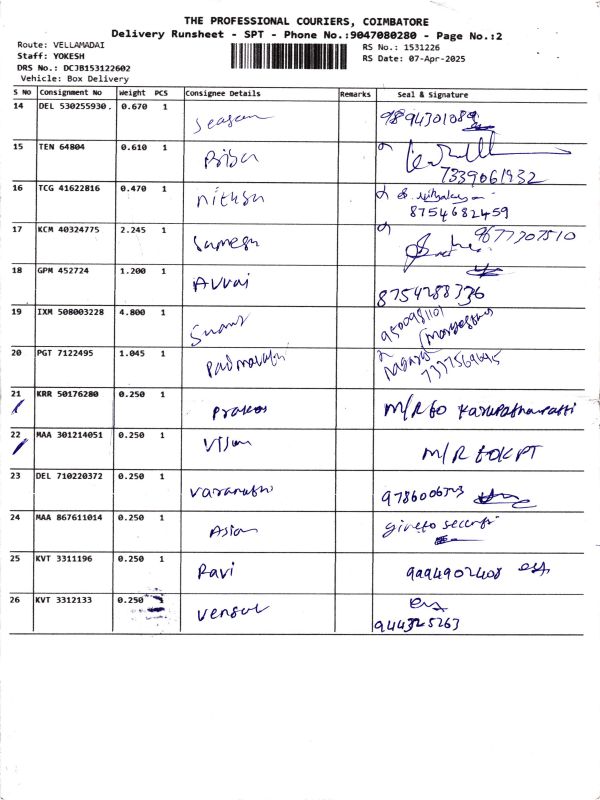 THE PROFESSIONAL COURIERS, COIMBATORE
Delivery Runsheet - SPT - Phone No.:9047080280 - Page No.:2
Route: VELLAMADAI
Staff: YOKESH
DRS No.: DCJB153122602
Vehicle: Box Delivery
RS No.: 1531226
RS Date: 07-Apr-2025
S No Consignment No Weight PCS Consignee Details Remarks Seal & Signature
14 DEL 530255930. 0.670 1 9894301089
15 TEN 64804 0.610 1 7339061932
16 TCG 41622816 0.470 1 nithsu 8754682459
17 KCM 40324775 2.245 1 Sumesh 9877307510
18 GPM 452724 1.200 1 Avvai 8754288336
19 IXM 508003228 4.800 1
20 PGT 7122495 1.045 1 Padmavathi
21 KRR 50176280 0.250 1 Prakas M/R to
22 MAA 301214051 0.250 1 M/R to KPT
23 DEL 710220372 0.250 1
24 MAA 867611014 0.250 1 Asian
25 KVT 3311196 0.250 1 Ravi 9494902408
26 KVT 3312133 0.250 944325263